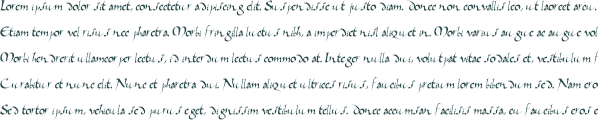 Lorem ipsum dolor sit amet, consectetur adipiscing elit. Suspendisse ut justo diam. Donec non convallis leo, ut laoreet arcu.
Etiam tempor vel risus nec pharetra. Morbi fringilla luctus nibh, a imperdiet nisl aliquet in. Morbi varius augue ac augue vol
Morbi hendrerit ullamcorper lectus, id interdum lectus commodo at. Integer nulla dui, volutpat vitae sodales et, vestibulum f
Curabitur et nunc elit. Nunc et pharetra dui. Nullam aliquet ultrices risus, faucibus pretium lorem bibendum sed. Nam ero
Sed tortor ipsum, vehicula sed purus eget, dignissim vestibulum tellus. Donec accumsan facilisis massa, eu faucibus eros c